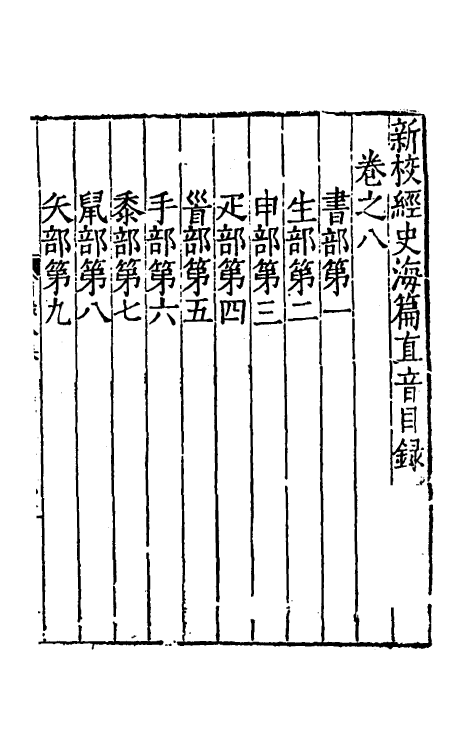 新校經史海篇直音目録
卷之八
書部第一
生部第二
申部第三
疋部第四
眥部第五
手部第六
黍部第七
鼠部第八
矢部第九